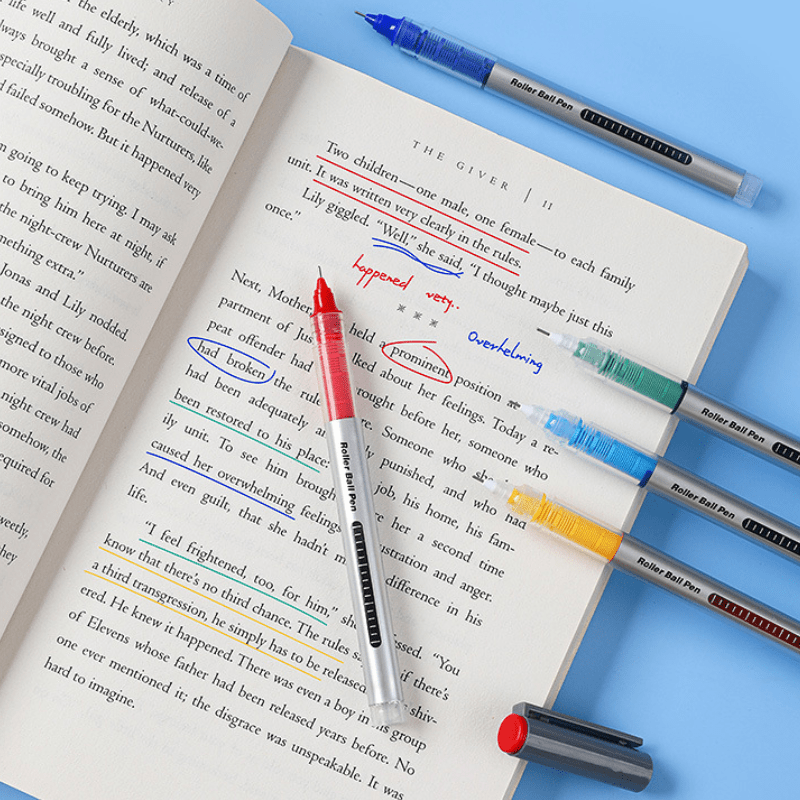 the elderly, which was a time of
life well and fully lived; and release of a
always brought a sense of what-could-we-
especially troubling for the Nurturers, like
failed somehow. But it happened very
going to keep trying. I may ask
to bring him here at night, if
the night-crew Nurturers are
mething extra."
Jonas and Lily nodded.
the night crew before.
signed to those who
more vital jobs of
night crew had
somehow, the
equired for
weetly,
they
THE GIVER | 11
Two children—one male, one female—to each family
unit. It was written very clearly in the rules.
Lily giggled. "Well," she said, "I thought maybe just this
once."
happened very..
Overhelming
Next, Mother, held a prominent position
partment of Jus lked about her feelings. Today a re-
peat offender had rought before her, someone who
had broken the rule re. Someone who she
had been adequately a y punished, and who had
been restored to his place: job, his home, his fam-
ily unit. To see him brough re her a second time
caused her overwhelming feelings ustration and anger.
And even guilt, that she hadn't m difference in his
life.
"I feel frightened, too, for him," she essed. "You
know that there's no third chance. The rules say if there's
a third transgression, he simply has to be released." shiv-
ered. He knew it happened. There was even a boy in his group
of Elevens whose father had been released years before. No
one ever mentioned it; the disgrace was unspeakable. It was
hard to imagine.
Roller Ball Pen
Roller Ball Pen
Roller Ball Pen
Roller Ball Pen
Roller Ball Pen